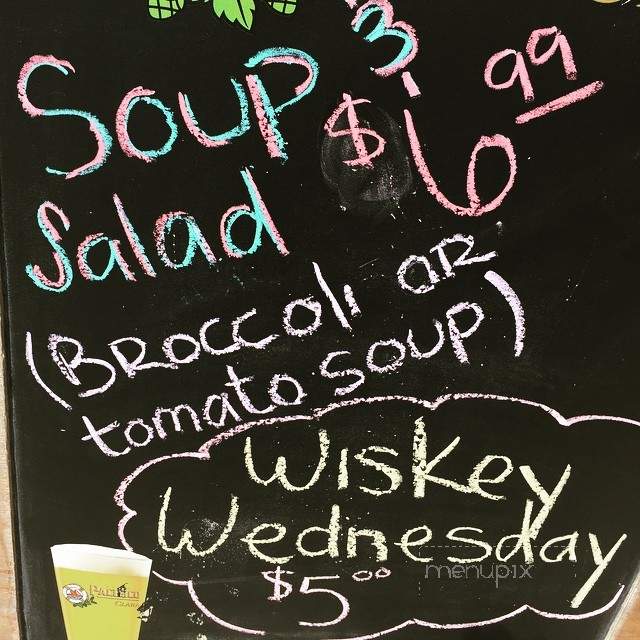 Soup & $6.99
Salad
(Broccoli or
tomato soup)
Wiskey
Wednesday
$5.00
menupix